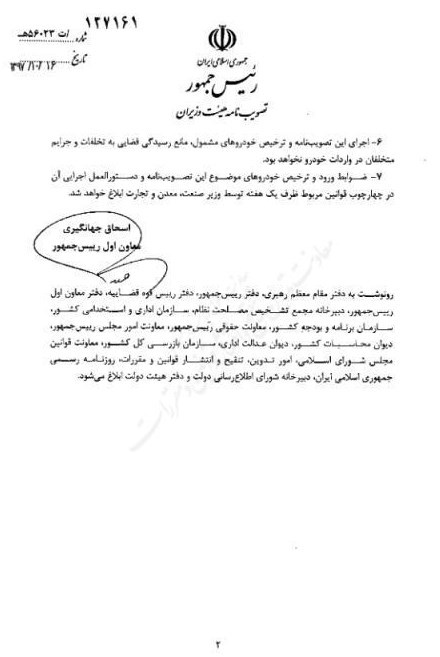 ۱۲۷۱۶۱
شماره /ت ۵۶۰۲۳هـ
تاریخ ۱۳۹۷/۱۰/۱۶
جمهوری اسلامی ایران
رئیس جمهور
تصویب نامه هیئت وزیران
۶- اجرای این تصویب‌نامه و ترخیص خودروهای مشمول، مانع رسیدگی قضایی به تخلفات و جرایم
متخلفان در واردات خودرو نخواهد بود.
۷- ضوابط ورود و ترخیص خودروهای موضوع این تصویب‌نامه و دستورالعمل اجرایی آن
در چهارچوب قوانین مربوط ظرف یک هفته توسط وزیر صنعت، معدن و تجارت ابلاغ خواهد شد.
اسحاق جهانگیری
معاون اول رییس‌جمهور
رونوشت به دفتر مقام معظم رهبری، دفتر رییس‌جمهور، دفتر رییس قوه قضاییه، دفتر معاون اول
رییس‌جمهور، دبیرخانه مجمع تشخیص مصلحت نظام، سازمان اداری و استخدامی کشور،
سازمان برنامه و بودجه کشور، معاونت حقوقی رییس‌جمهور، معاونت امور مجلس رییس‌جمهور،
دیوان محاسبات کشور، دیوان عدالت اداری، سازمان بازرسی کل کشور، معاونت قوانین
مجلس شورای اسلامی، امور تدوین، تنقیح و انتشار قوانین و مقررات، روزنامه رسمی
جمهوری اسلامی ایران، دبیرخانه شورای اطلاع‌رسانی دولت و دفتر هیئت دولت ابلاغ می‌شود.
۲